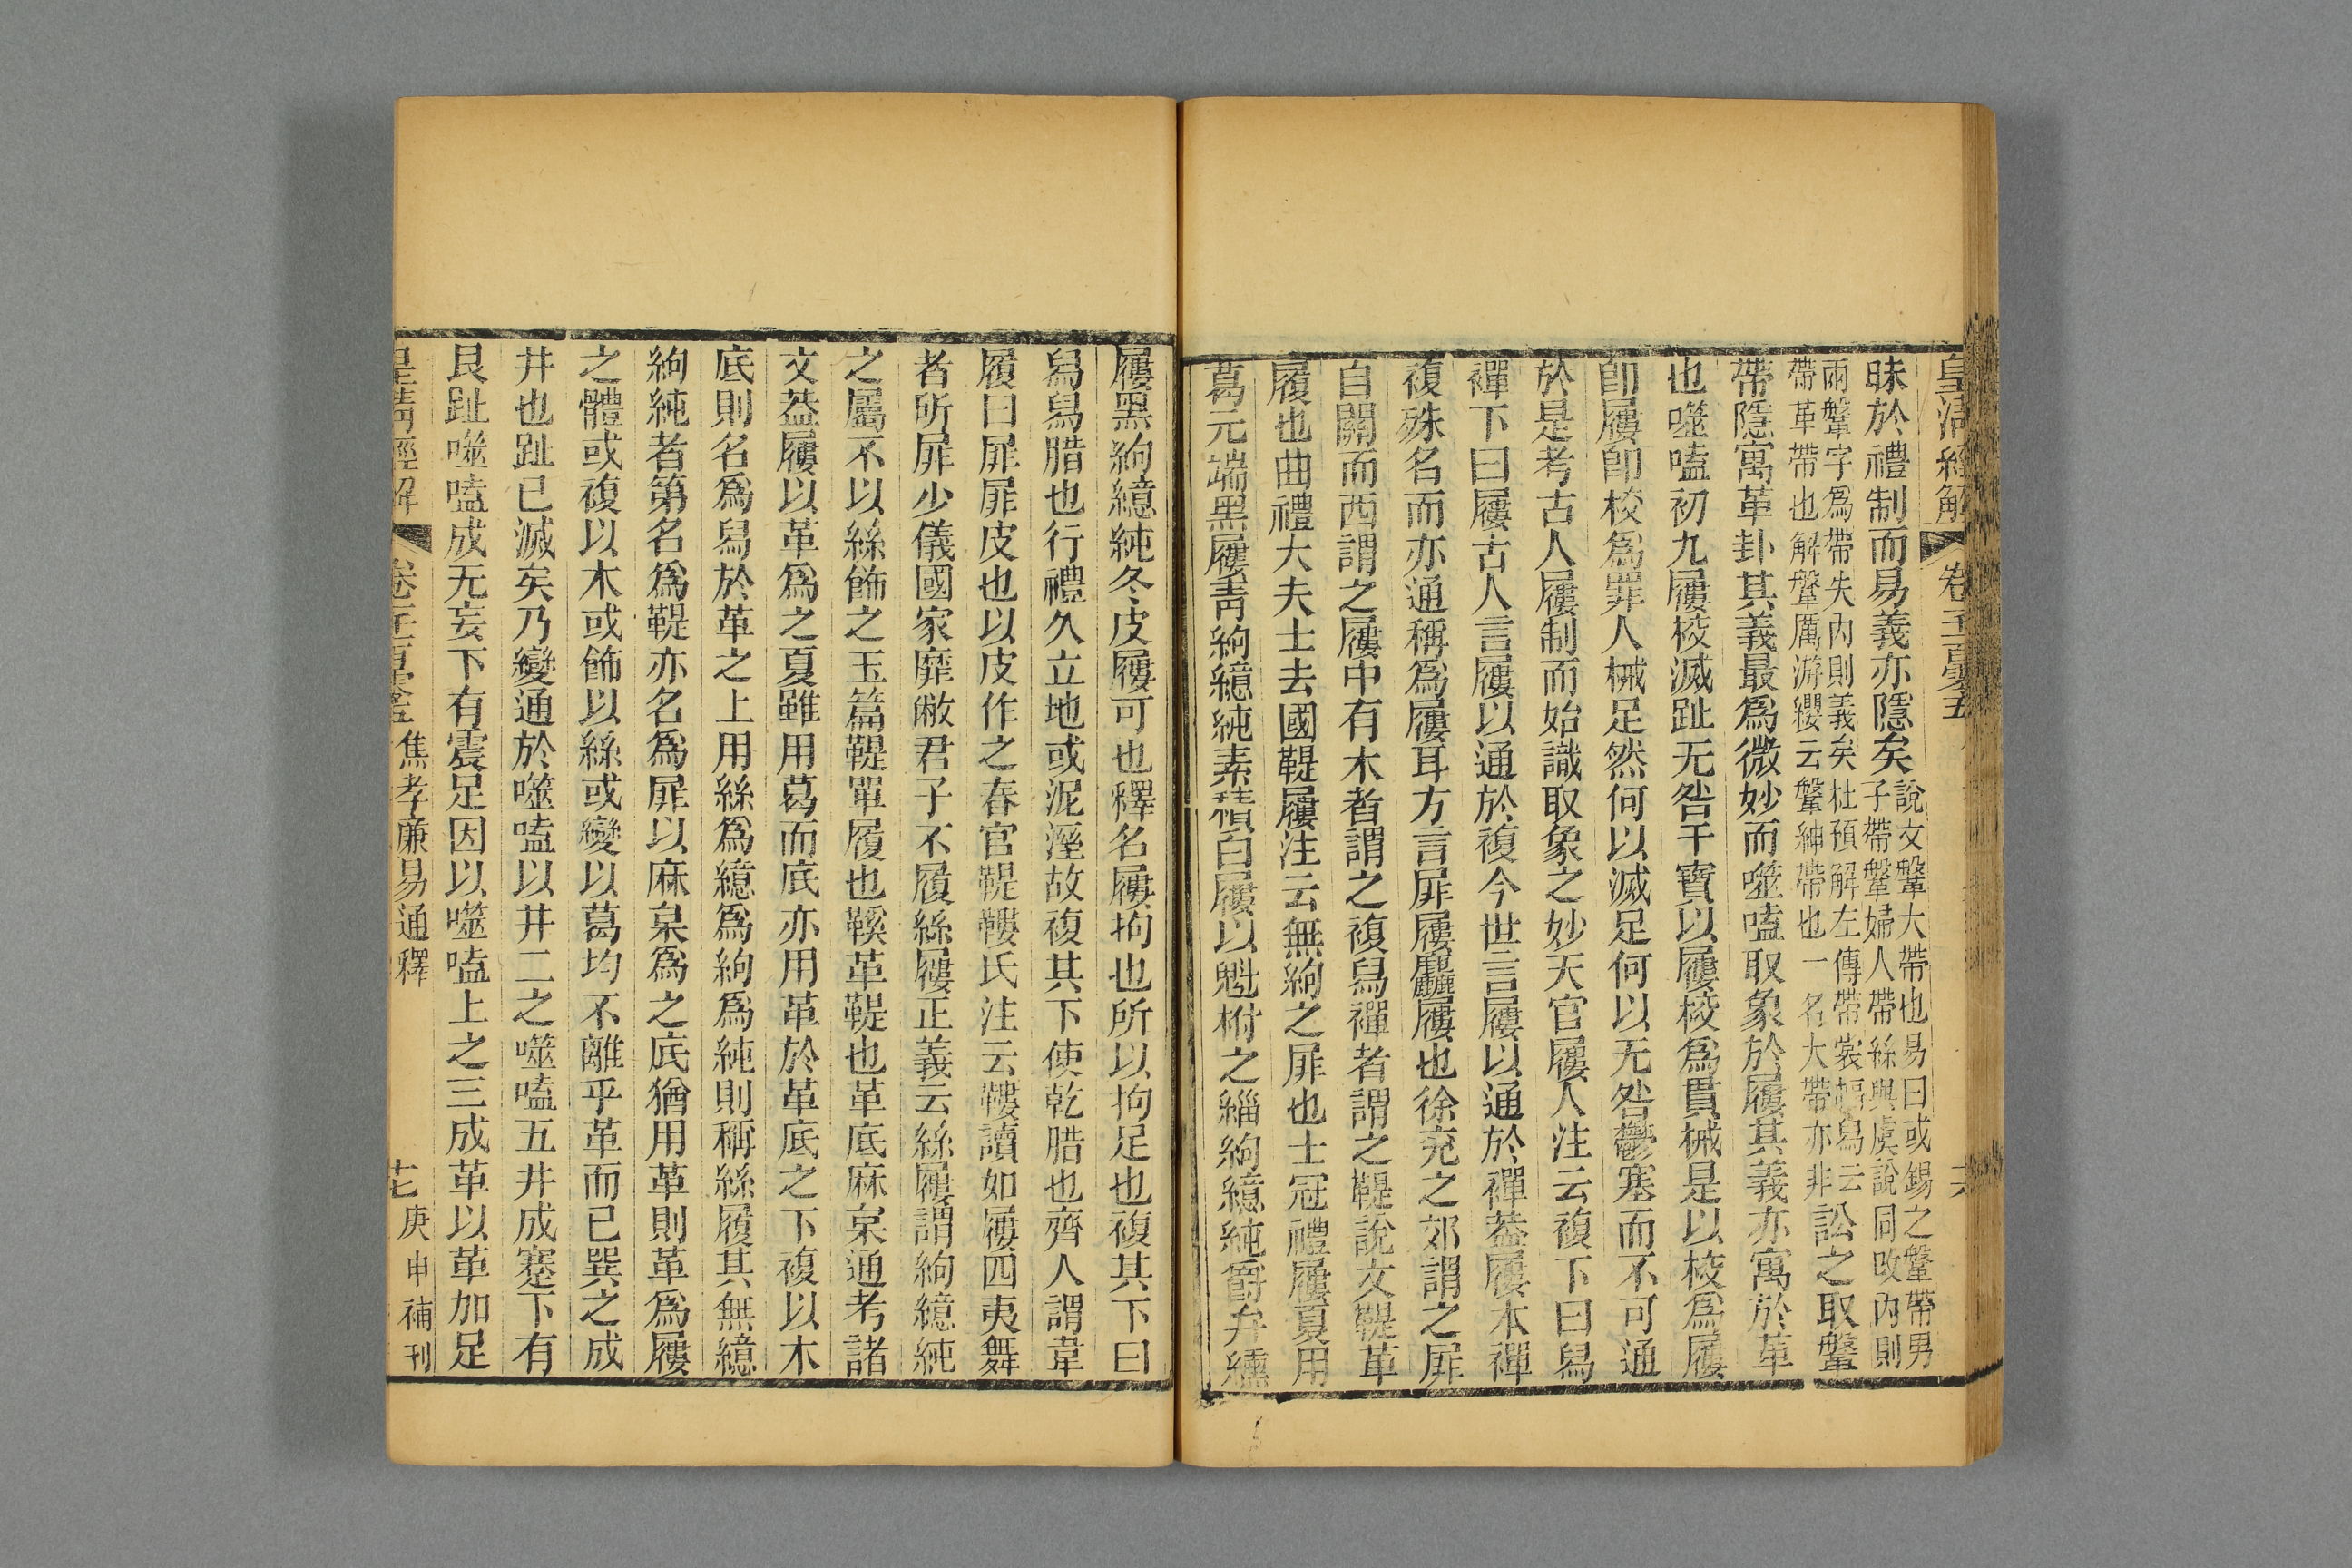 皇清經解 卷一千五 六
昧於禮制而易義亦隱矣 說文鞶大帶也易曰或錫之鞶帶男
子帶鞶婦人帶絲與虞說同攺內則
兩鞶字爲帶失內則義矣杜預解左傳帶裳幅舄云
帶革帶也解鞶厲游纓云鞶紳帶也一名大帶亦非 訟之取鞶
帶隱寓革卦其義最爲微妙而噬嗑取象於屨其義亦寓於革
也噬嗑初九屨校滅趾无咎干寶以屨校爲貫械是以校爲屨
卽屨卽校爲罪人械足然何以滅足何以无咎鬱塞而不可通
於是考古人屨制而始識取象之妙天官屨人注云複下曰舄
襌下曰屨古人言屨以通於複今世言屨以通於襌葢屨本襌
複殊名而亦通稱爲屨耳方言屝屨麤履也徐兗之郊謂之屝
自關而西謂之屨中有木者謂之複舄襌者謂之鞮說文鞮革
履也曲禮大夫士去國鞮屨注云無絇之屝也士冠禮屨夏用
葛元端黑屨青絇繶純素積白屨以魁柎之緇絇繶純爵弁纁
屨黑絇繶純冬皮屨可也釋名屨拘也所以拘足也複其下曰
舄舄腊也行禮久立地或泥溼故複其下使乾腊也齊人謂韋
履曰屝屝皮也以皮作之春官鞮鞻氏注云鞻讀如屨四夷舞
者所屝少儀國家靡敝君子不履絲屨正義云絲屨謂絇繶純
之屬不以絲飾之玉篇鞮單履也鞵革鞮也革底麻枲通考諸
文葢屨以革爲之夏雖用葛而底亦用革於革底之下複以木
底則名爲舄於革之上用絲爲繶爲絇爲純則稱絲履其無繶
絇純者第名爲鞮亦名爲屝以麻枲爲之底猶用革則革爲屨
之體或複以木或飾以絲或變以葛均不離乎革而已巽之成
井也趾已滅矣乃變通於噬嗑以井二之噬嗑五井成蹇下有
艮趾噬嗑成无妄下有震足因以噬嗑上之三成革以革加足
皇清經解 焦孝廉易通釋 庚申補刊